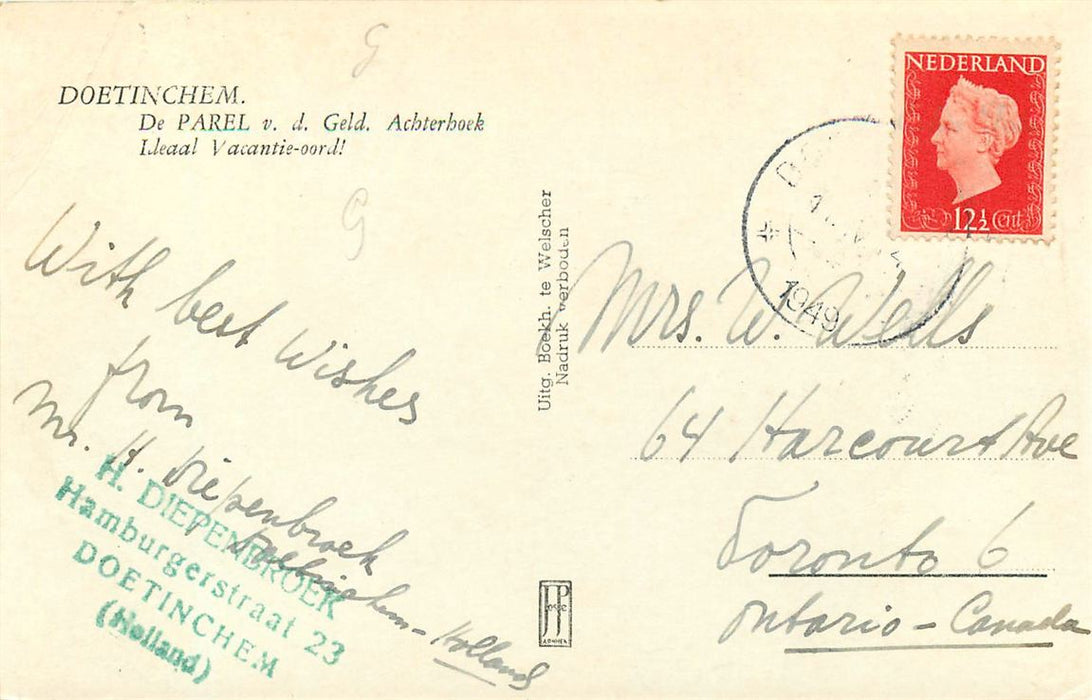 DOETINCHEM.
De PAREL v. d. Geld. Achterhoek
Ideaal Vacantie-oord!
G
G
With best Wishes
from
Mr. H. Diepenbroek
Doetinchem - Holland
H. DIEPENBROEK
Hamburgerstraat 23
DOETINCHEM
(Holland)
Uitg. Boekh. te Welscher
Nadruk verboden
JP
NEDERLAND
12½ Cent
1949
Mrs. W. Wells
64 Harcourt Ave
Toronto 6
Ontario - Canada